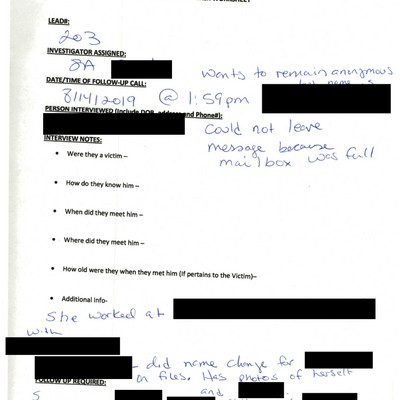 WORKSHEET
LEAD#:
203
INVESTIGATOR ASSIGNED:
8A
Wants to remain anonymous
DATE/TIME OF FOLLOW-UP CALL:
8/14/2019 @ 1:59pm
PERSON INTERVIEWED (Include DOB, address and Phone#):
Could not leave
message because
mailbox was full
INTERVIEW NOTES:
• Were they a victim –
• How do they know him –
• When did they meet him –
• Where did they meet him –
• How old were they when they met him (If pertains to the Victim)–
• Additional Info-
She worked at
with
- did name change for
on files. Has photos of herself
FOLLOW UP REQUIRED:
and